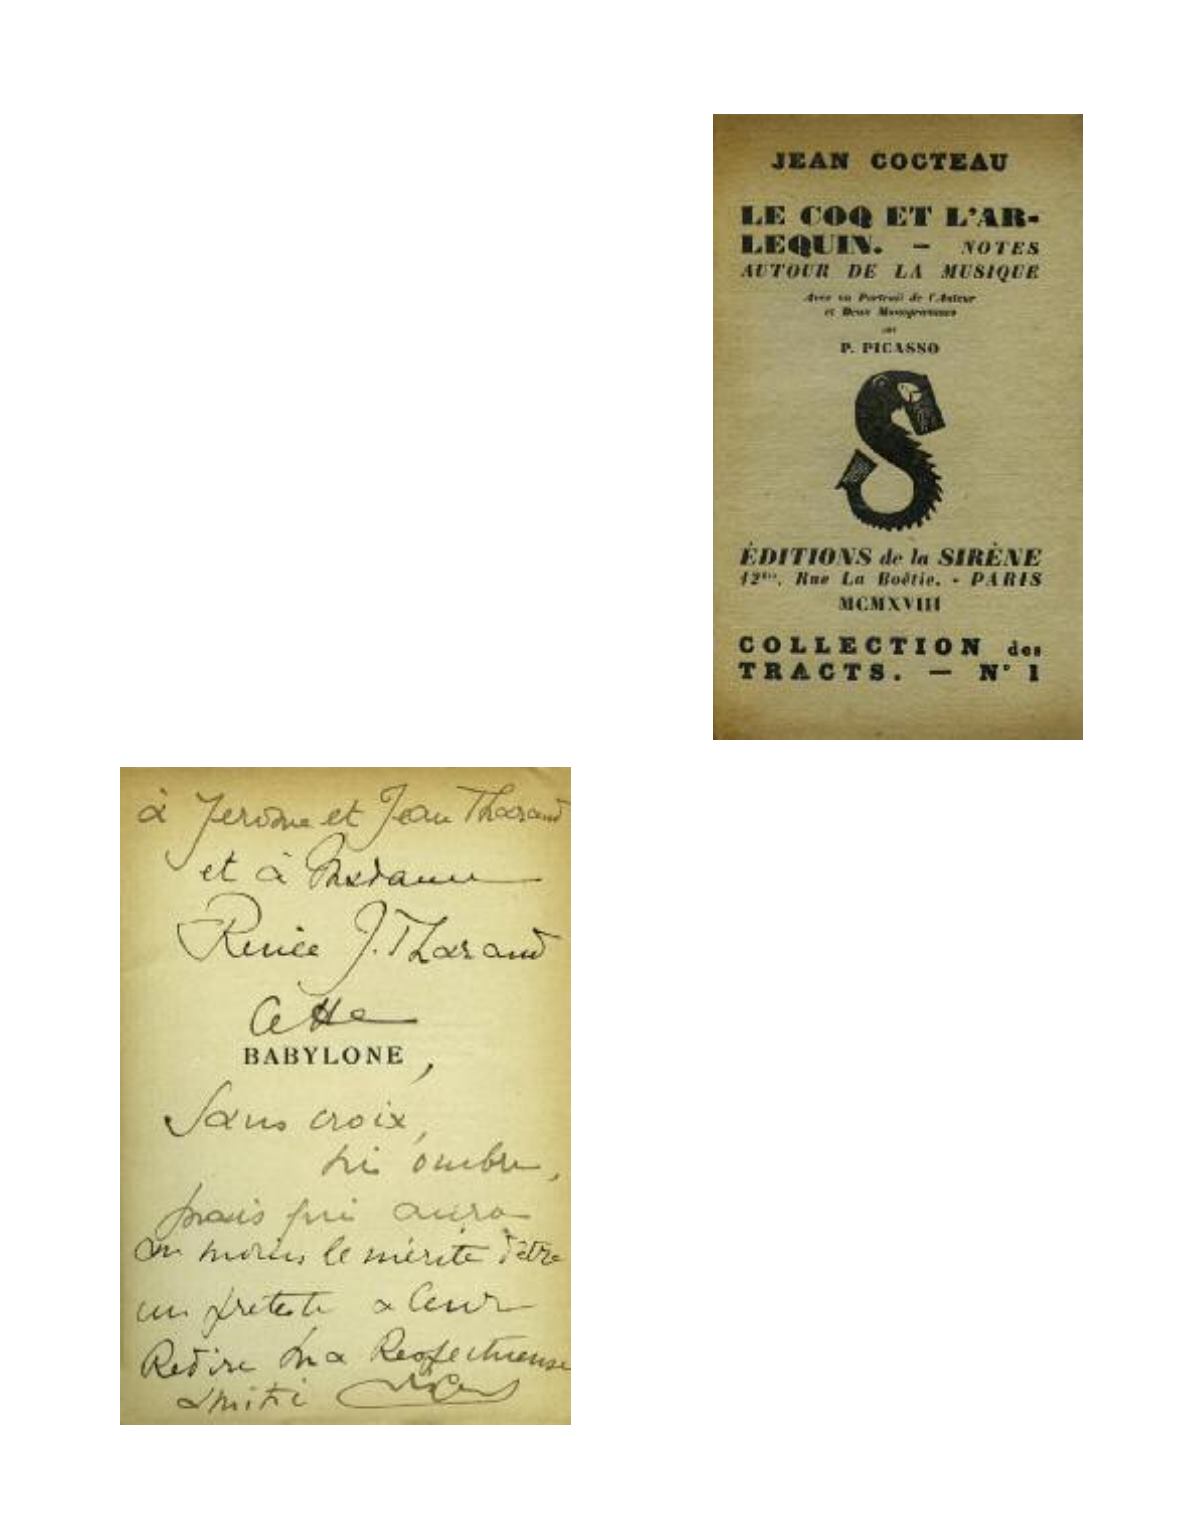 JEAN COCTEAU
LE COQ ET L'AR-
LEQUIN. — NOTES
AUTOUR DE LA MUSIQUE
Avec un Portrait de l'Auteur
et Deux Monogrammes
par
P. PICASSO
ÉDITIONS de la SIRÈNE
12bis, Rue La Boëtie. - PARIS
MCMXVIII
COLLECTION des
TRACTS. — N° 1
à Jerome et Jean Tharaud
et à Madame
Renée J. Tharaud
Cette
BABYLONE,
Sans croix,
ni ombre,
mais qui aura
au moins le mérite d'être
un prétexte à leur
Redire ma Respectueuse
amitié